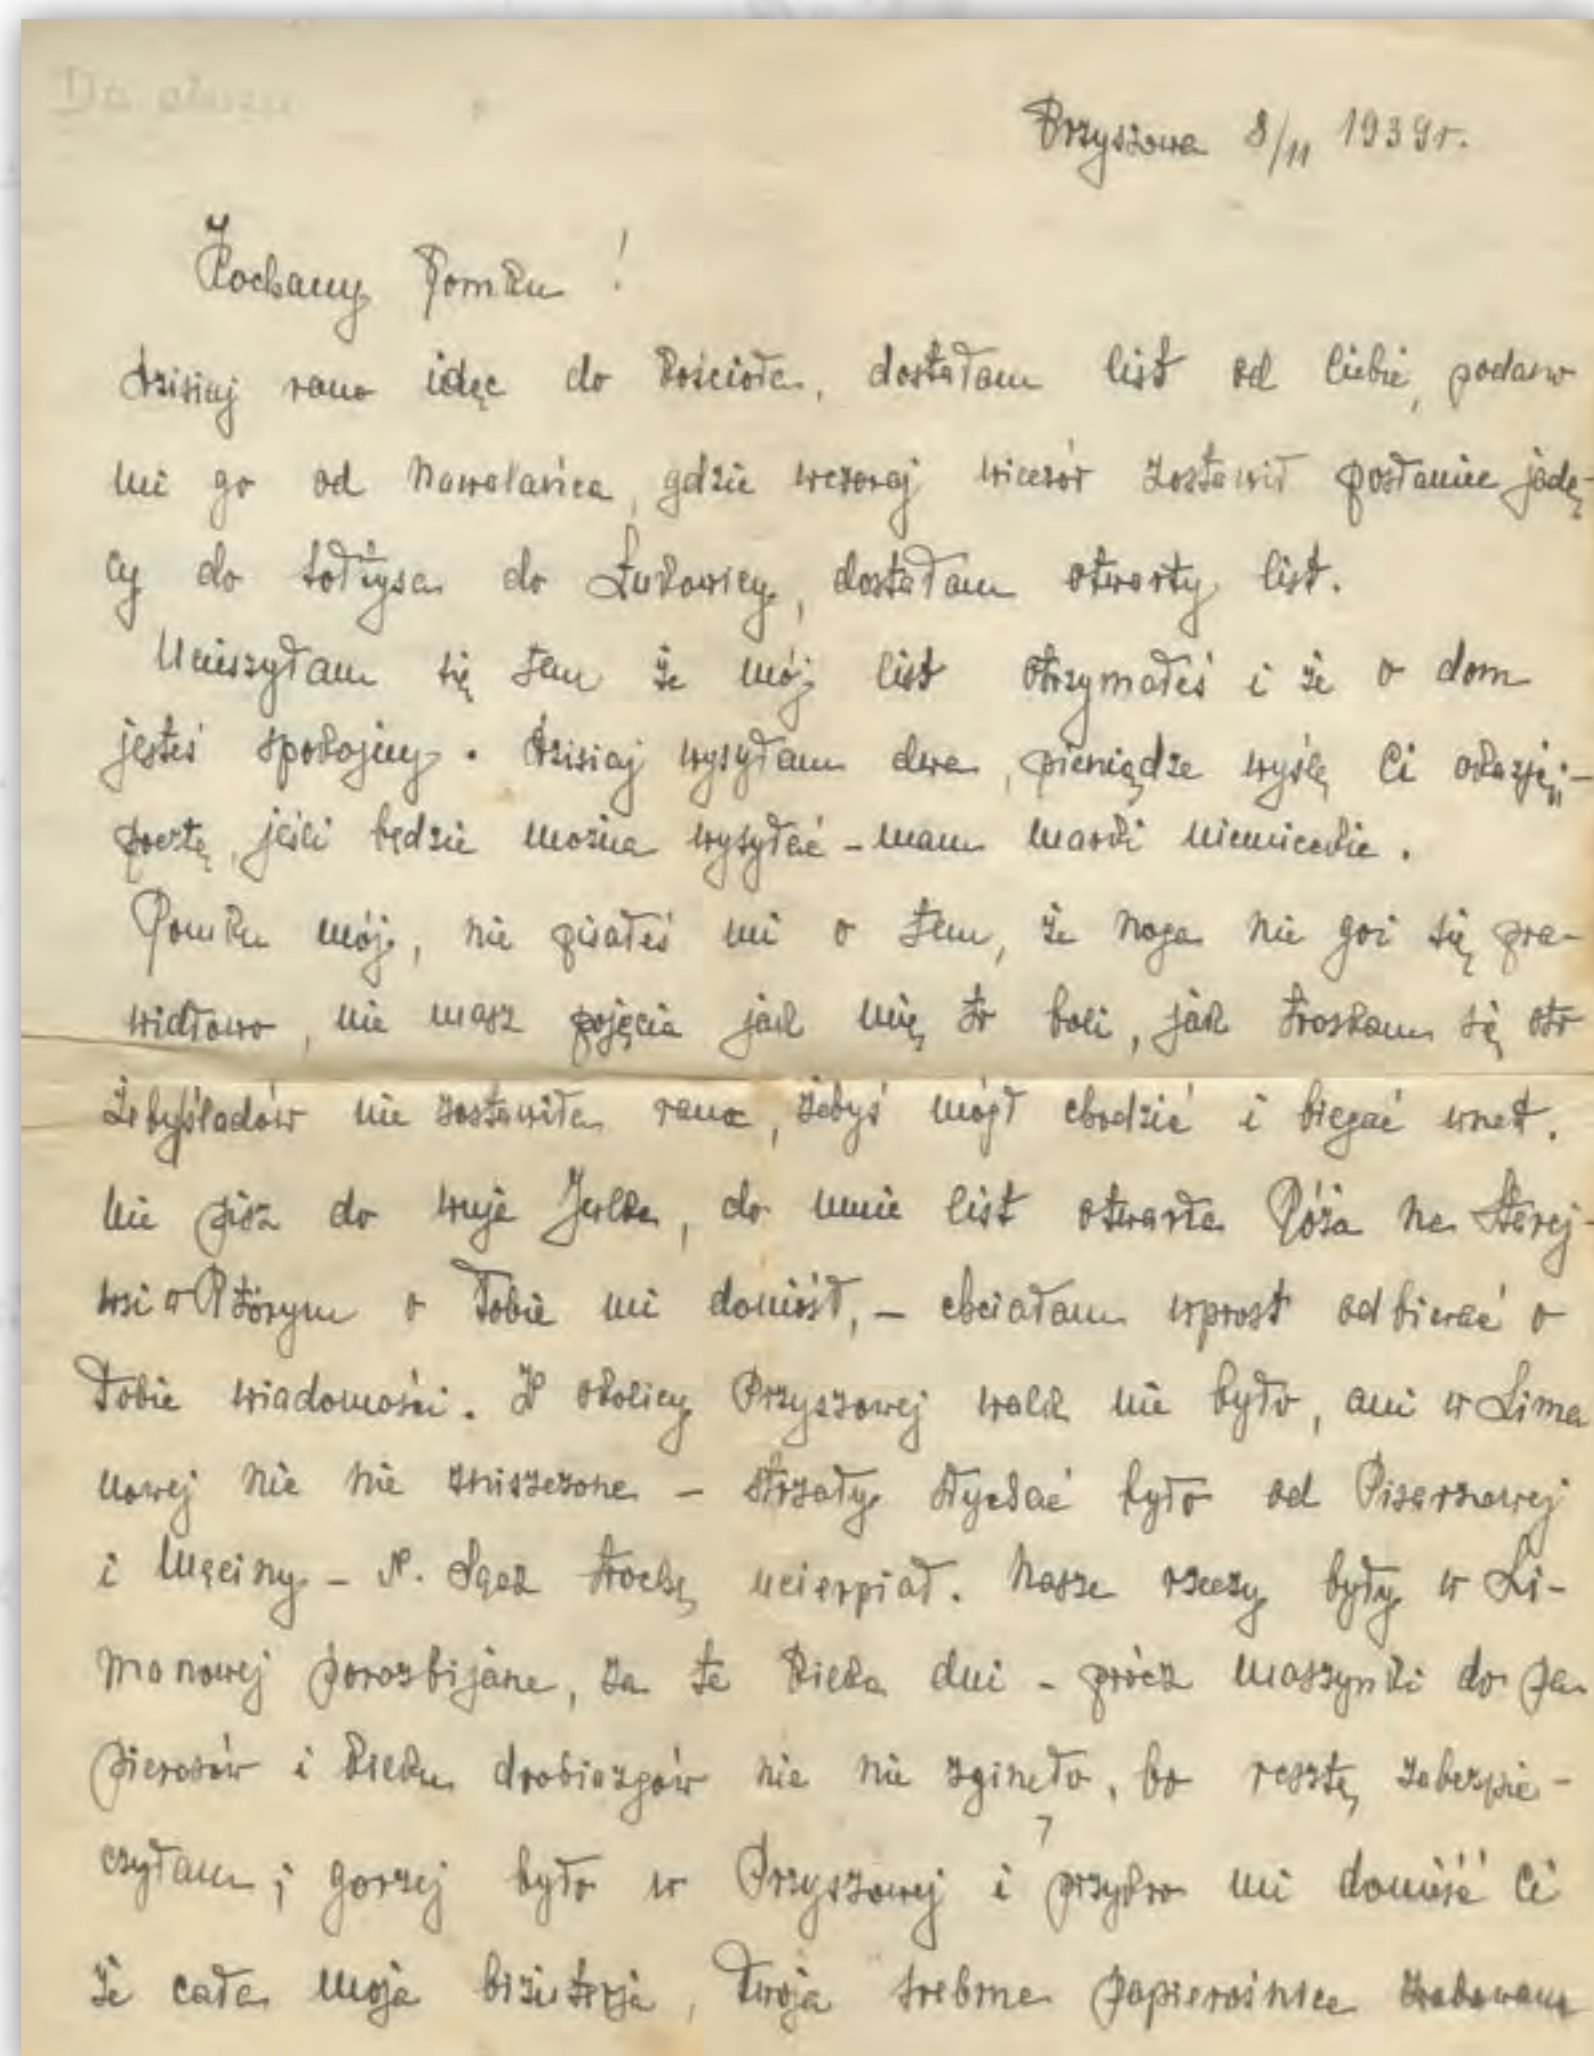 Przyszowa 8/11 1939r.
Kochany Romku!
dzisiaj rano idąc do kościoła, dostałam list od Ciebie, podano
mi go od Nawalańca, gdzie wczoraj wieczór zostawił posłaniec jadą-
cy do Sołtysa do Łukowicy, dostałam otwarty list.
Ucieszyłam się tem że mój list otrzymałeś i że o dom
jesteś spokojny. dzisiaj wysyłam dwa, pieniądze wyślę Ci okazją i-
pocztą, jeśli będzie można wysyłać - mam marki niemieckie.
Romku mój, nie pisałeś mi o tem, że noga nie goi się pra-
widłowo, nie masz pojęcia jak mię to boli, jak troskam się oto
żebyśladów nie zostawiła rana, żebyś mógł chodzić i biegać wnet.
Nie pisz do wuja Julka, do mnie list otwarła Róża na Starej-
wsi w którym o Tobie mi doniósł, - chciałam wprost odbierać o
Tobie wiadomości. W okolicy Przyszowej walk nie było, ani w Lima
nowej nic nie zniszczone - strzały słychać było od Pisarzowej
i Męciny - N. Sącz trochę ucierpiał. Nasze rzeczy były w Li-
manowej porozbijane, za te kilka dni - prócz maszynki do pa-
pierosów i kilku drobiazgów nic nie zginęło, bo resztę zabezpie-
czyłam; gorzej było w Przyszowej i przykro mi donieść Ci
że cała moja biżuterja, Twoja srebrna papierośnica zrabowana